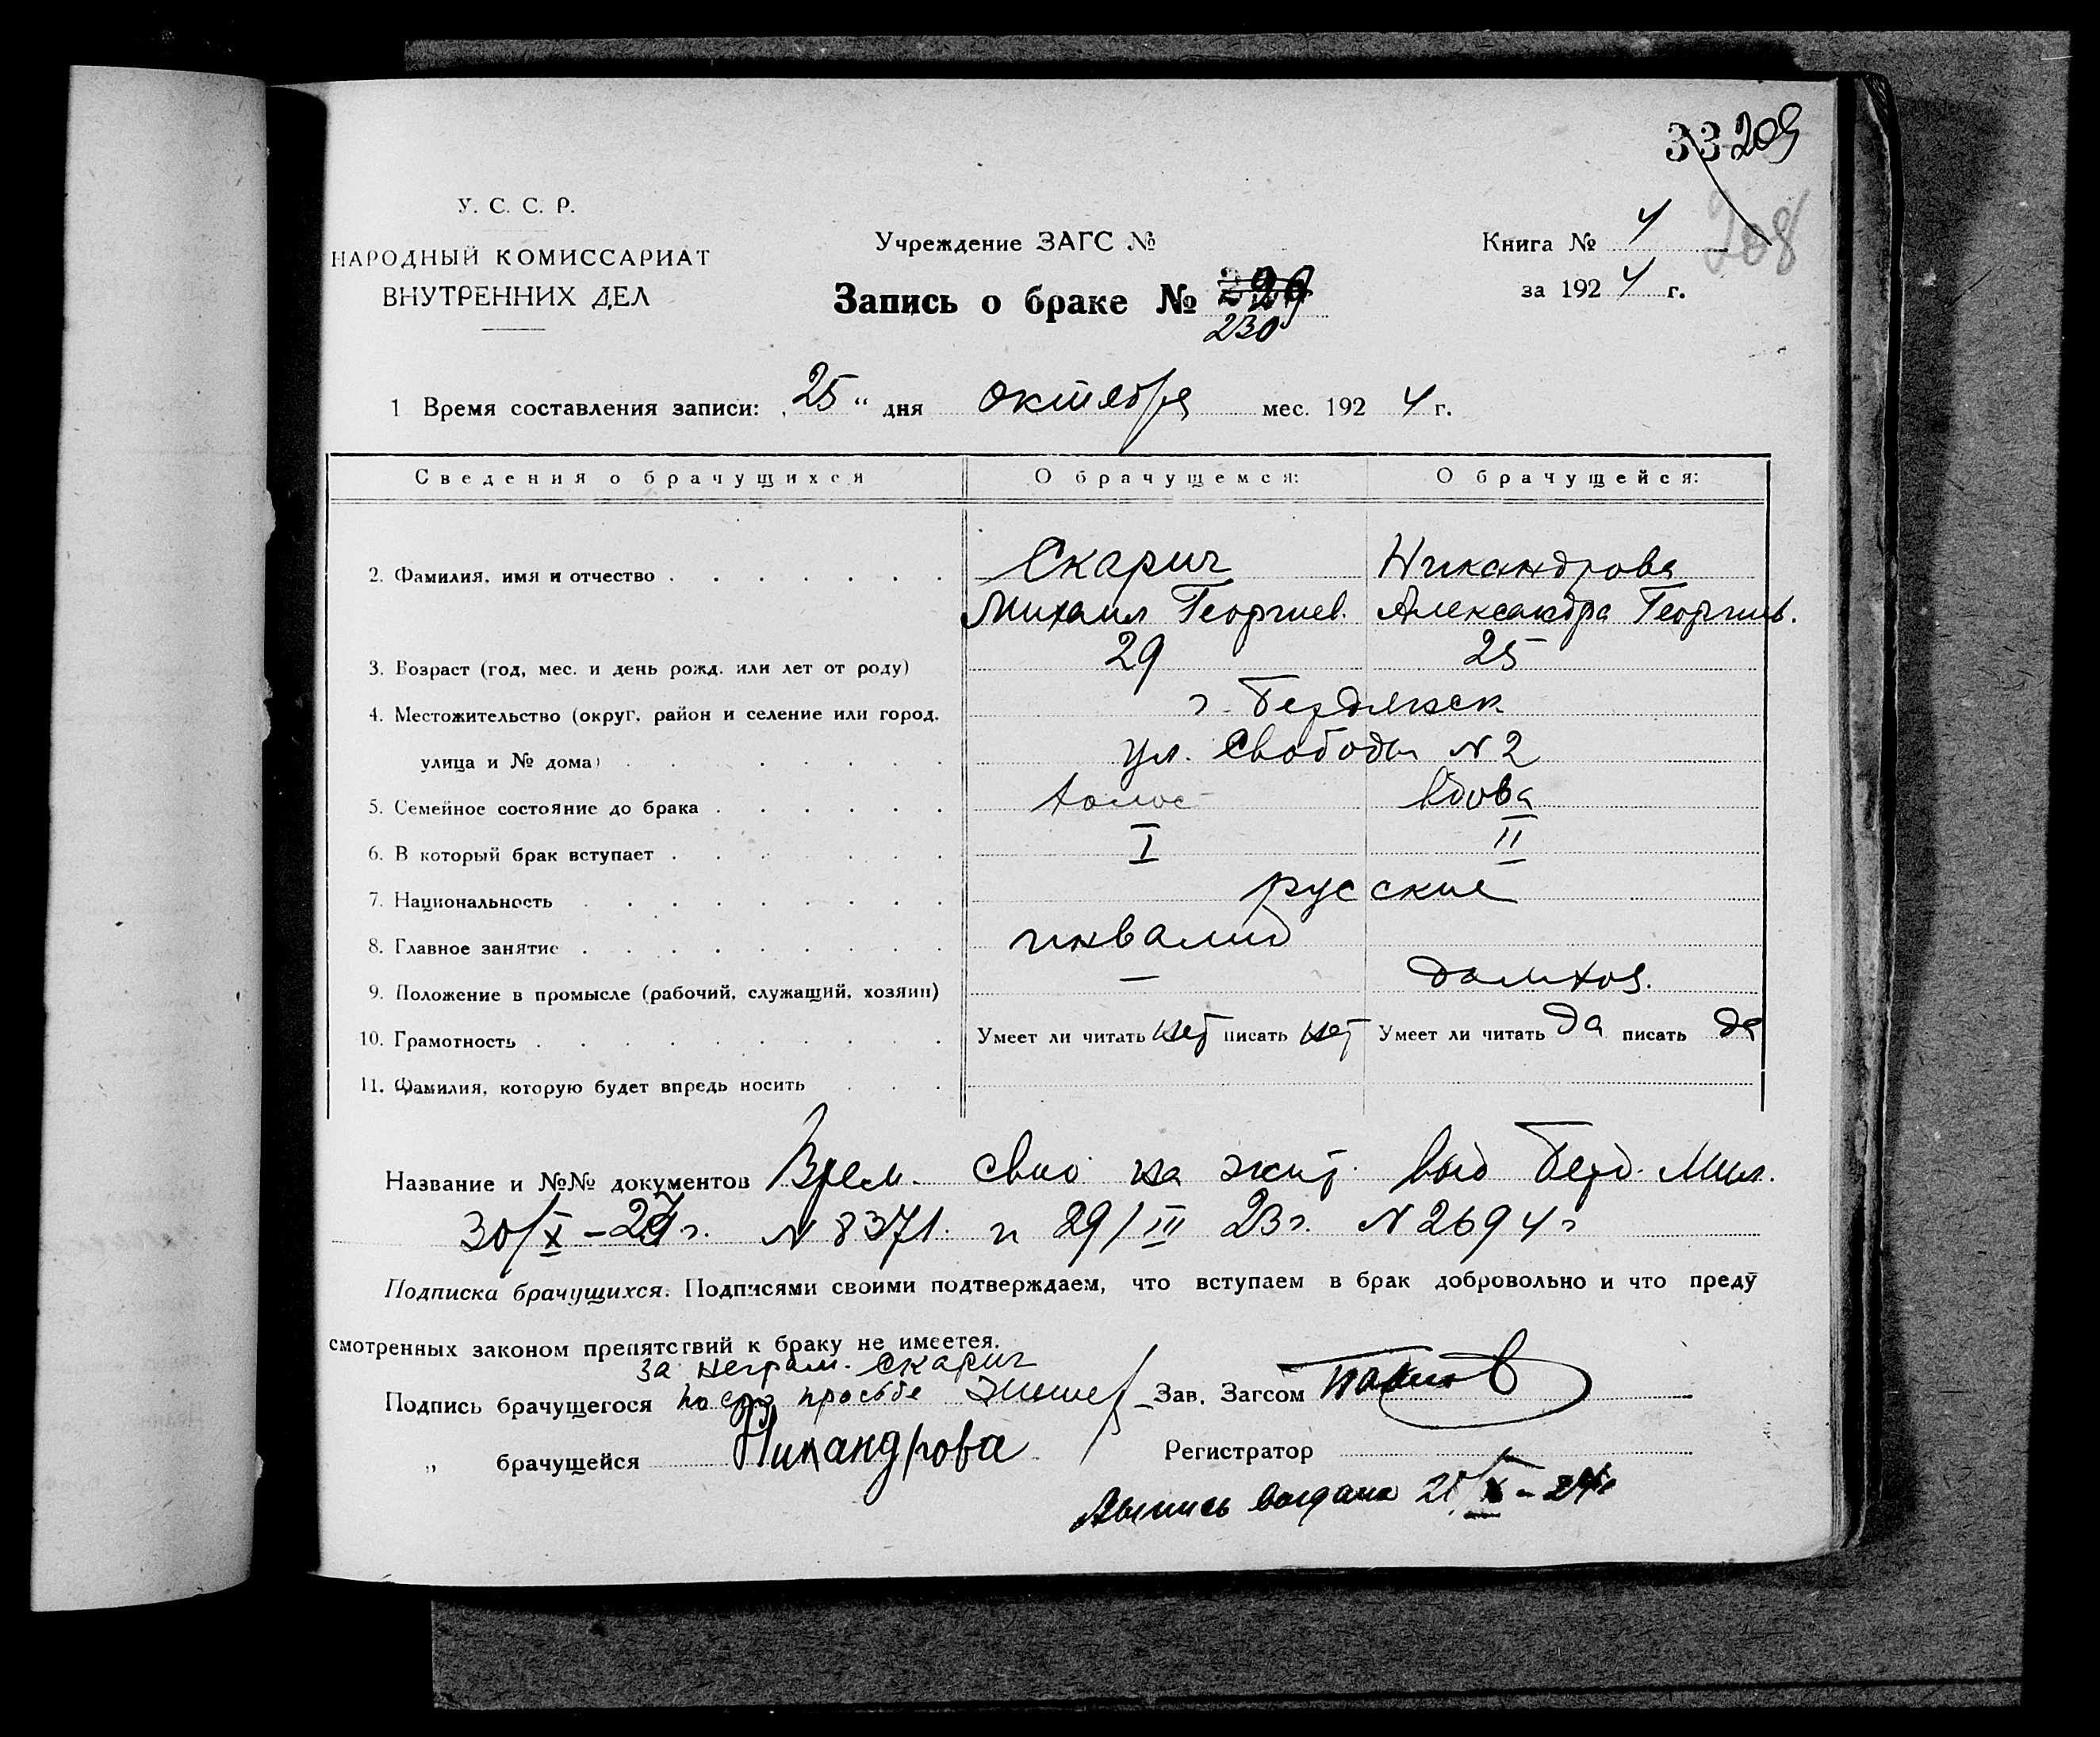 33 209
208
У. С. С. Р.
НАРОДНЫЙ КОМИССАРИАТ
ВНУТРЕННИХ ДЕЛ
Учреждение ЗАГС №
Книга № 4
за 1924 г.
Запись о браке №
230
1 Время составления записи: „25“ дня октября мес. 1924 г.
Сведения о брачущихся О брачущемся: О брачущейся:
2. Фамилия, имя и отчество Скарич Никандрова
Михаил Георгиев. Александра Георгиев.
3. Возраст (год, мес. и день рожд. или лет от роду) 29 25
4. Местожительство (округ, район и селение или город, г. Бердянск
улица и № дома) ул. Свободы № 2
5. Семейное состояние до брака холост вдова
6. В который брак вступает I II
7. Национальность русские
8. Главное занятие инвалид
9. Положение в промысле (рабочий, служащий, хозяин) — домхоз.
10. Грамотность Умеет ли читать нет писать нет Умеет ли читать да писать да
11. Фамилия, которую будет впредь носить
Название и №№ документов Врем. свид на жит. выд Берд. Мил.
30/X - г. № 8371. и 29/III 23 г. № 2694
Подписка брачущихся. Подписями своими подтверждаем, что вступаем в брак добровольно и что преду
смотренных законом препятствий к браку не имеется.
за неграм. Скарич
Подпись брачущегося по его просьбе Зав. Загсом
„ брачущейся Никандрова Регистратор
Выпись выдана